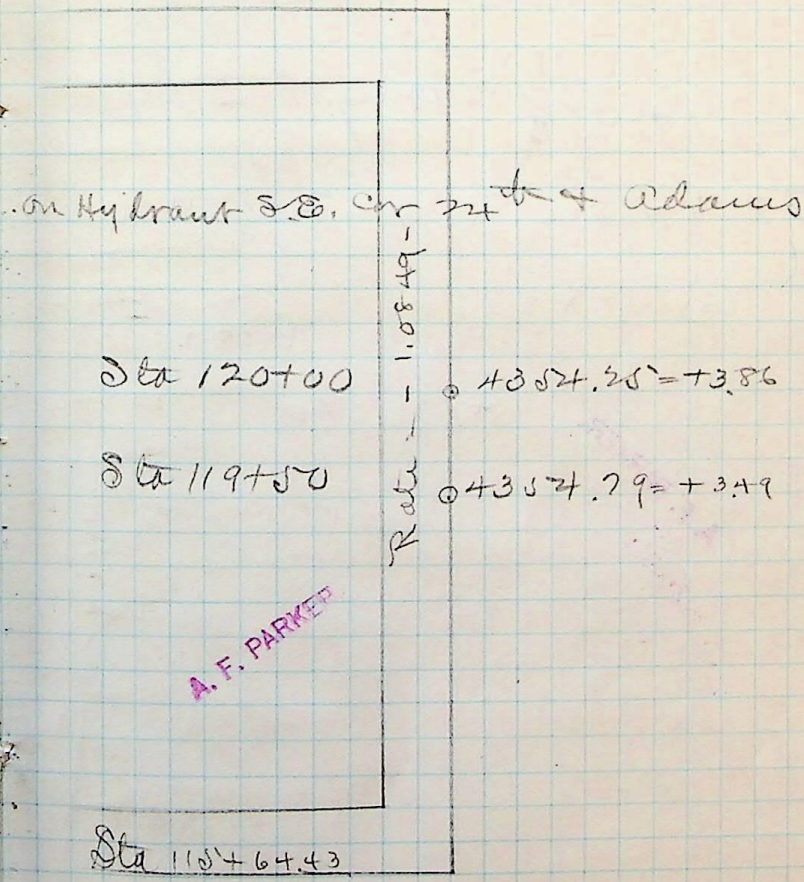 on Hydrant S.E. Cor 24th & Adams
Rate - - 1.0849 -
Sta 120+00 4354.25 = +3.86
Sta 119+50 4354.79 = +3.49
A. F. PARKER
Sta 115+64.43